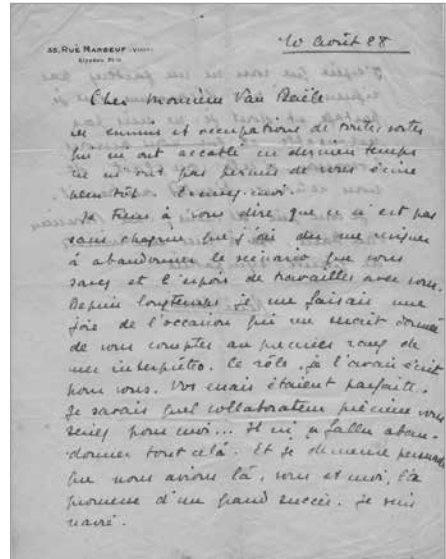 55, RUE MARBEUF (VIIIe)
10 Août 28
Cher Monsieur Van Daële
les ennuis et occupations de toutes sortes
qui m'ont accablé ces derniers temps
ne m'ont pas permis de vous écrire
plus tôt. Excusez-moi.
Je tiens à vous dire que ce n'est pas
sans chagrin que j'ai dû me résigner
à abandonner le scénario que vous
savez et l'espoir de travailler avec vous.
Depuis longtemps je me faisais une
joie de l'occasion qui me serait donnée
de vous compter au premier rang de
mes interprètes. Ce rôle, je l'avais écrit
pour vous. Vos essais étaient parfaits.
Je savais quel collaborateur précieux vous
seriez pour moi... Il m'a fallu aban-
donner tout celà. Et je demeure persuadé
que nous avions là, vous et moi, la
promesse d'un grand succès. Je suis
navré.